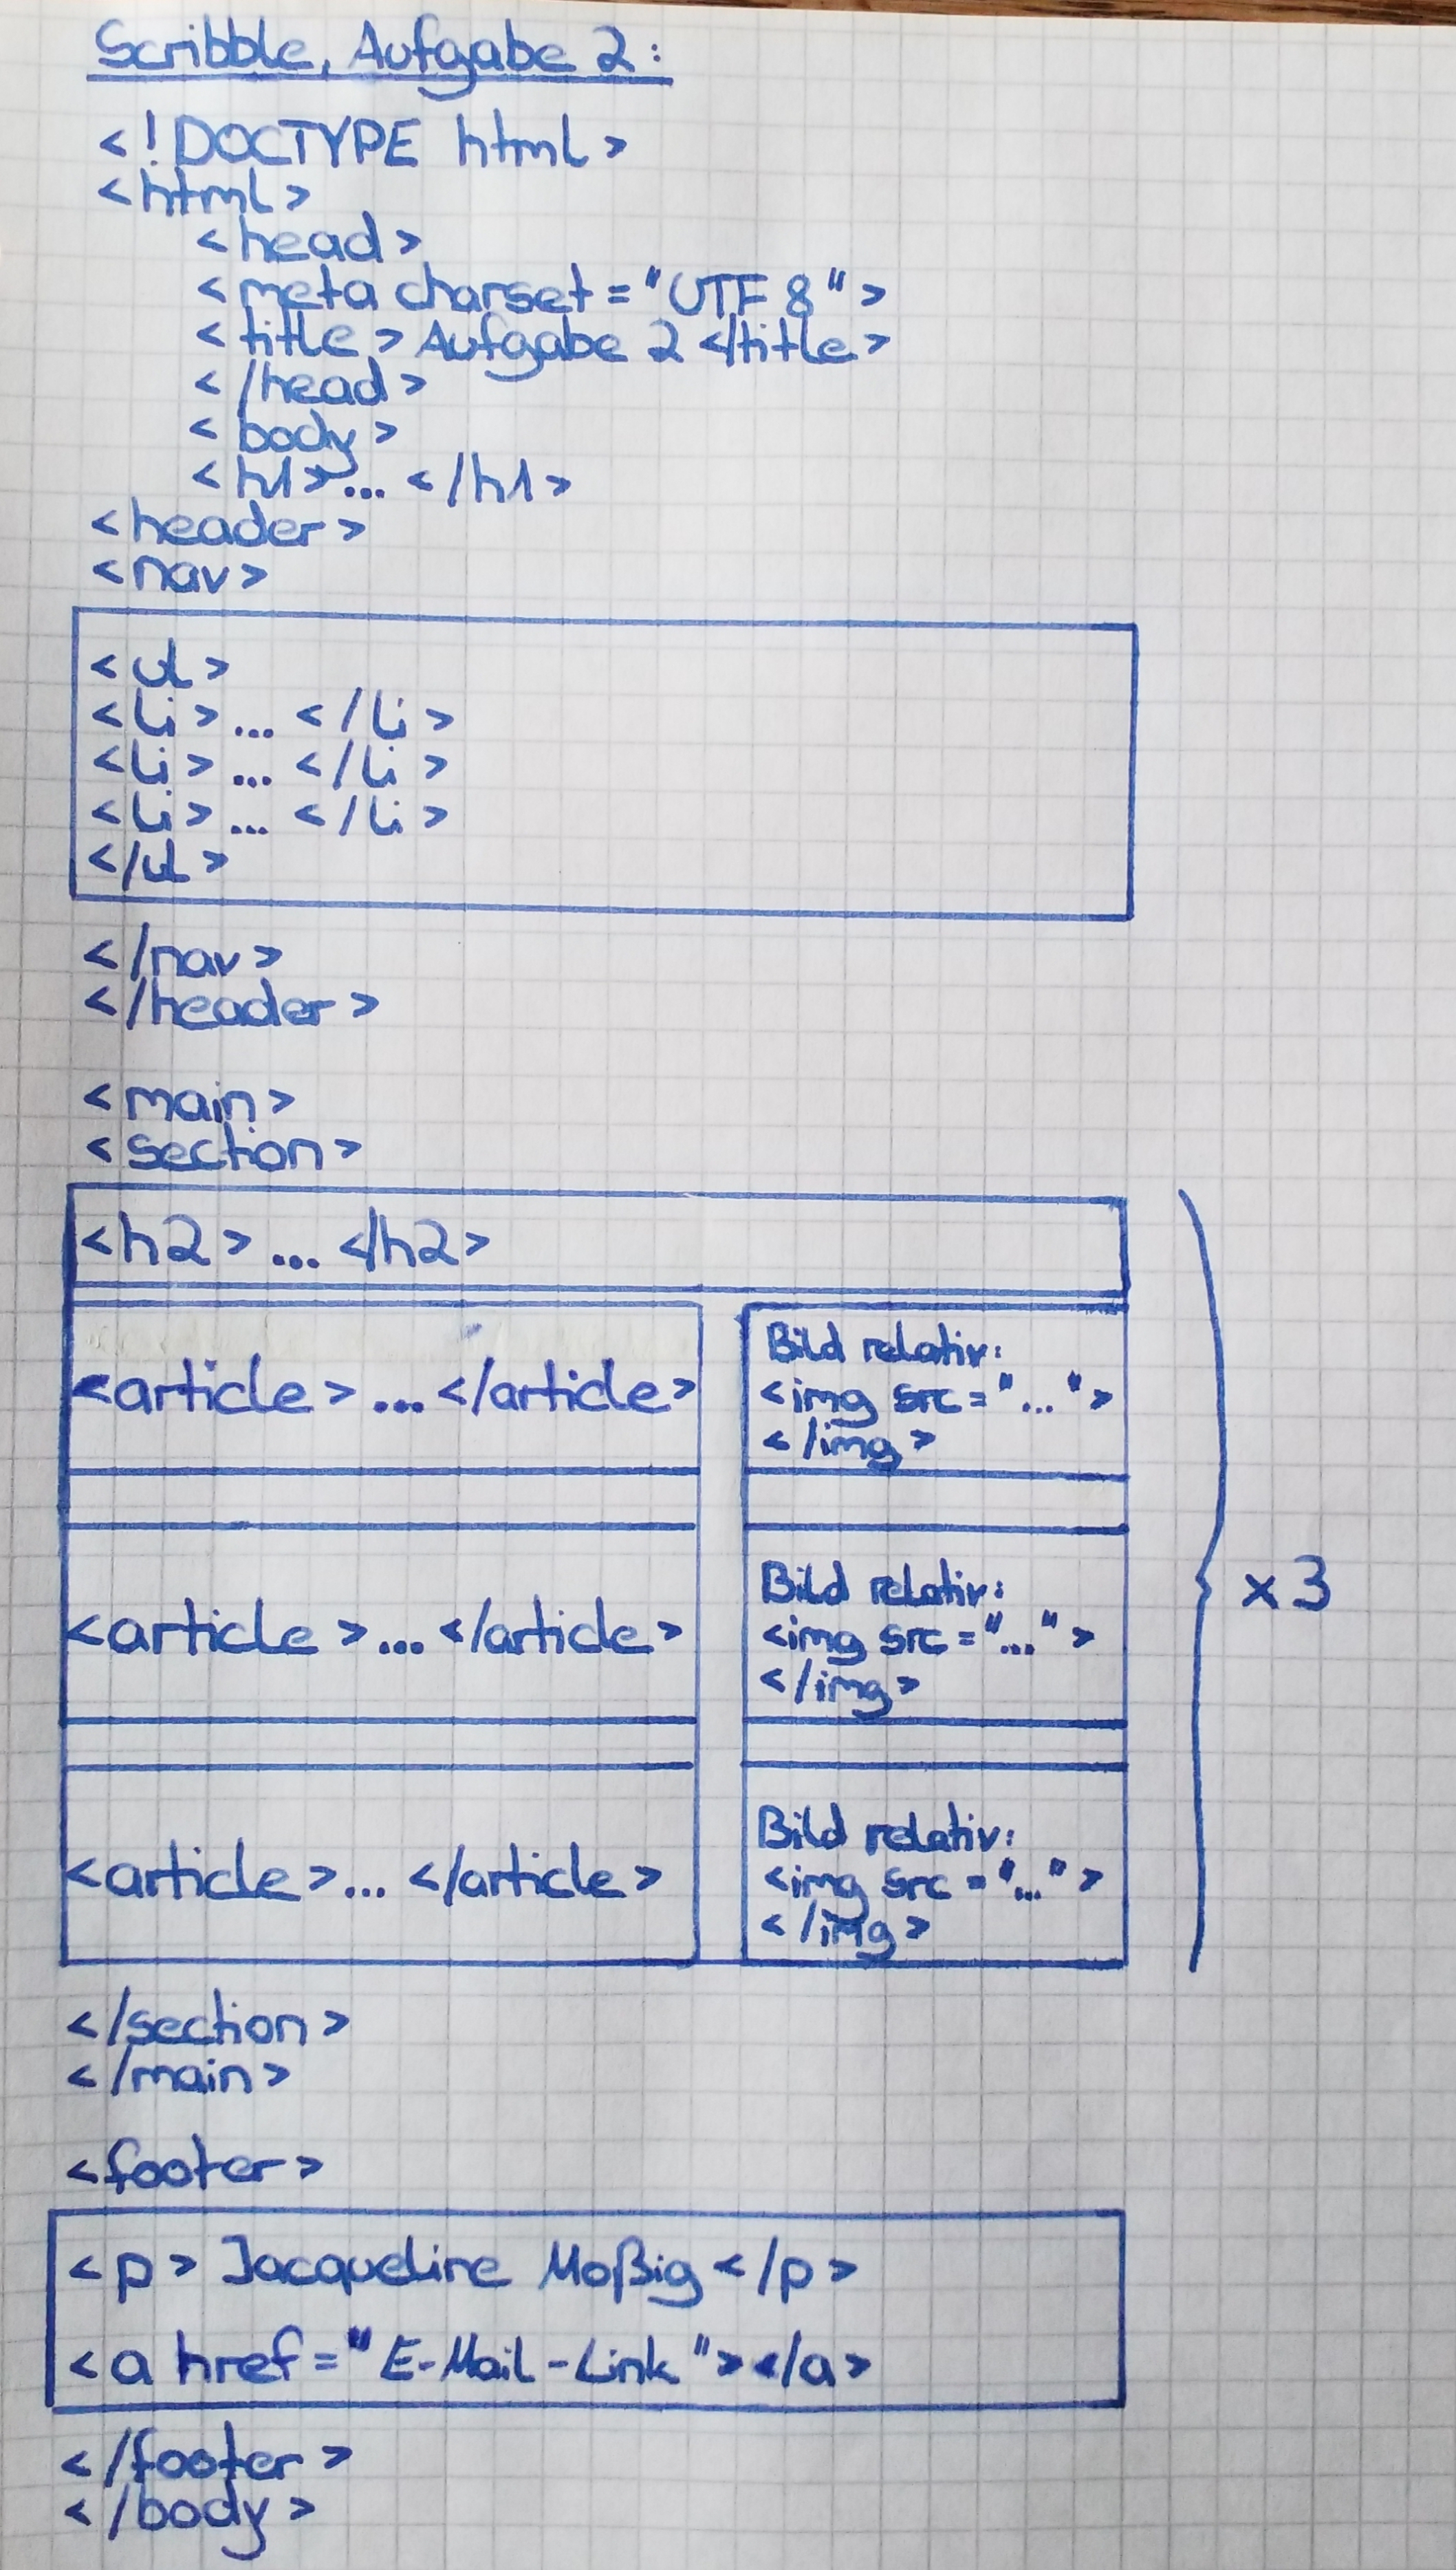 Scribble, Aufgabe 2:
<!DOCTYPE html>
<html>
<head>
<meta charset="UTF 8">
<title>Aufgabe 2</title>
</head>
<body>
<h1>...</h1>
<header>
<nav>
<ul>
<li>...</li>
<li>...</li>
<li>...</li>
</ul>
</nav>
</header>
<main>
<section>
<h2>...</h2>
<article>...</article>
Bild relativ:
<img src="...">
</img>
<article>...</article>
Bild relativ:
<img src="...">
</img>
<article>...</article>
Bild relativ:
<img src="...">
</img>
x3
</section>
</main>
<footer>
<p>Jacqueline Moßig</p>
<a href="E-Mail-Link"></a>
</footer>
</body>